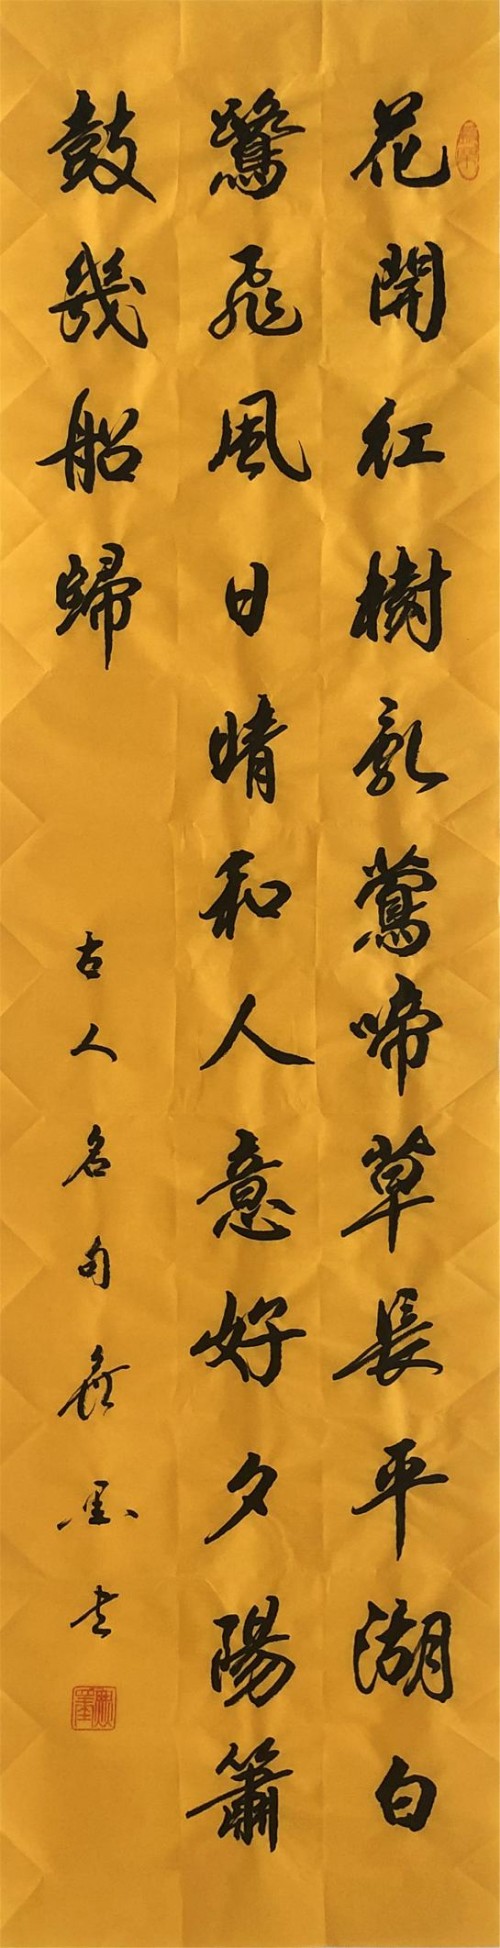 花開紅樹亂鶯啼草長平湖白
鷺飛風日晴和人意好夕陽簫
鼓幾船歸
古人名句墨书